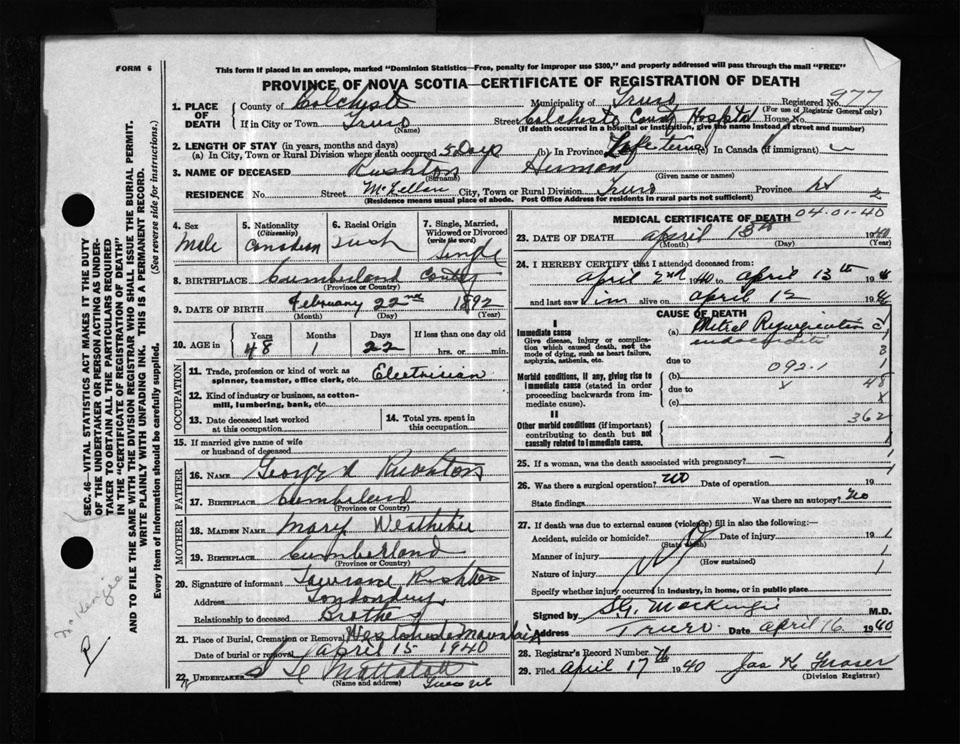 FORM 6
This form if placed in an envelope, marked "Dominion Statistics—Free, penalty for improper use $300," and properly addressed will pass through the mail "FREE"
PROVINCE OF NOVA SCOTIA—CERTIFICATE OF REGISTRATION OF DEATH
SEC. 46—VITAL STATISTICS ACT MAKES IT THE DUTY
OF THE UNDERTAKER OR PERSON ACTING AS UNDER-
TAKER TO OBTAIN ALL THE PARTICULARS REQUIRED
IN THE "CERTIFICATE OF REGISTRATION OF DEATH"
AND TO FILE THE SAME WITH THE DIVISION REGISTRAR WHO SHALL ISSUE THE BURIAL PERMIT.
WRITE PLAINLY WITH UNFADING INK. THIS IS A PERMANENT RECORD.
Every item of information should be carefully supplied. (See reverse side for instructions.)
1. PLACE OF DEATH County of Colchester Municipality of Truro Registered No. 977
(For use of Registrar General only)
If in City or Town Truro (Name) Street Colchester County Hospital House No.
(If death occurred in a hospital or institution, give the name instead of street and number)
2. LENGTH OF STAY (in years, months and days)
(a) In City, Town or Rural Division where death occurred 5 Days (b) In Province Life time (c) In Canada (if immigrant)
3. NAME OF DECEASED Rushton (Surname) (Given name or names)
RESIDENCE No. Street McLellan City, Town or Rural Division Truro Province NS 2
(Residence means usual place of abode. Post Office Address for residents in rural parts not sufficient)
4. Sex Male
5. Nationality (Citizenship) Canadian
6. Racial Origin
7. Single, Married, Widowed or Divorced (write the word) Single
8. BIRTHPLACE Cumberland County
(Province or Country)
9. DATE OF BIRTH February 22nd 1892
(Month) (Day) (Year)
10. AGE in Years 48 Months 1 Days 22 If less than one day old hrs. or min.
OCCUPATION
11. Trade, profession or kind of work as spinner, teamster, office clerk, etc. Electrician
12. Kind of industry or business, as cotton-mill, lumbering, bank, etc.
13. Date deceased last worked at this occupation
14. Total yrs. spent in this occupation
15. If married give name of wife or husband of deceased
FATHER
16. NAME George Rushton
17. BIRTHPLACE Cumberland
(Province or Country)
MOTHER
18. MAIDEN NAME Mary
19. BIRTHPLACE Cumberland
(Province or Country)
20. Signature of informant Lawrance Rushton
Address Londonderry
Relationship to deceased Brother
21. Place of Burial, Cremation or Removal Westchester Mountain
Date of burial or removal April 15 1940
22. UNDERTAKER Mattatall
(Name and address) Truro NS
MEDICAL CERTIFICATE OF DEATH 04-01-40
23. DATE OF DEATH April 13th 1940
(Month) (Day) (Year)
24. I HEREBY CERTIFY that I attended deceased from:
April 2nd 1940 to April 13th 19
and last saw him alive on April 12 19
CAUSE OF DEATH
I
Immediate cause
Give disease, injury or complication which caused death, not the mode of dying, such as heart failure, asphyxia, asthenia, etc.
(a) Mitral Regurgitation c̄
endocarditis
due to
Morbid conditions, if any, giving rise to immediate cause (stated in order proceeding backwards from immediate cause).
(b) 092.1
due to x 48
(c) x
II
Other morbid conditions (if important) contributing to death but not causally related to immediate cause.
362
25. If a woman, was the death associated with pregnancy? —
26. Was there a surgical operation? No Date of operation 19
State findings Was there an autopsy? No
27. If death was due to external causes (violence) fill in also the following:—
Accident, suicide or homicide? (State which) Date of injury 19
Manner of injury (How sustained)
Nature of injury
Specify whether injury occurred in industry, in home, or in public place
Signed by MacKenzie M.D.
Address Truro Date April 16 1940
28. Registrar's Record Number
29. Filed April 17th 1940 Jas K Fraser
(Division Registrar)